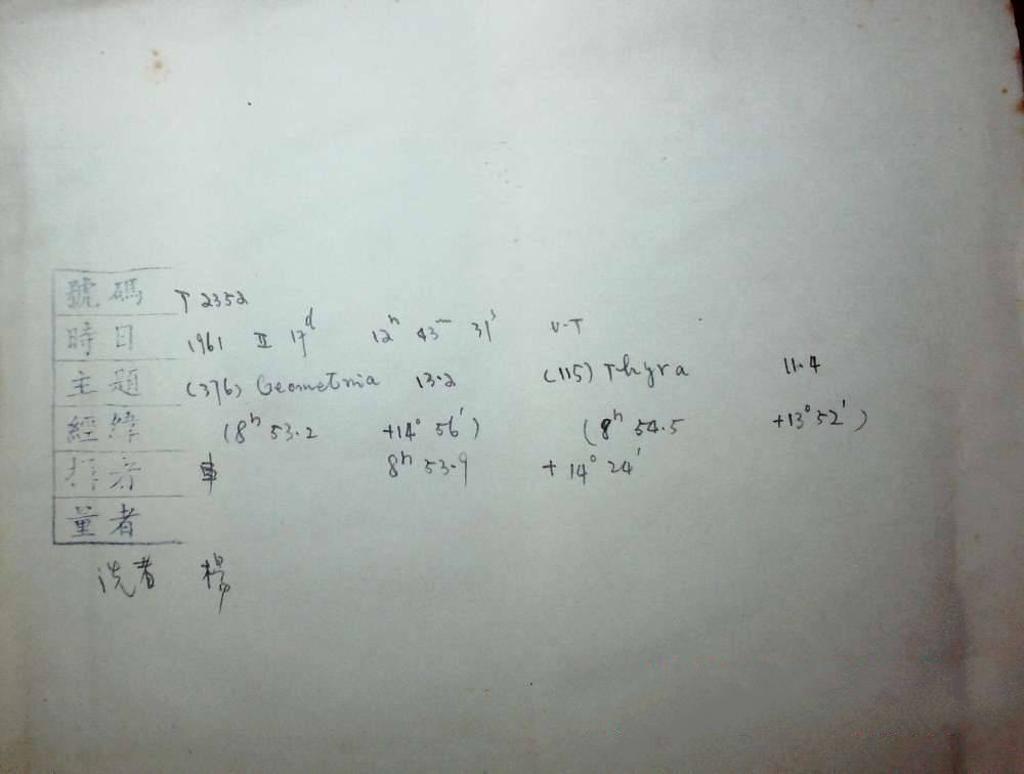 號碼 T 2352
時日 1961 II 17d 12h 43m 31s U.T
主題 (376) Geometria 13.2 (115) Thyra 11.4
經緯 (8h 53.2 +14° 56') (8h 54.5 +13° 52')
者 8h 53.9 +14° 24'
量者
洗者 楊